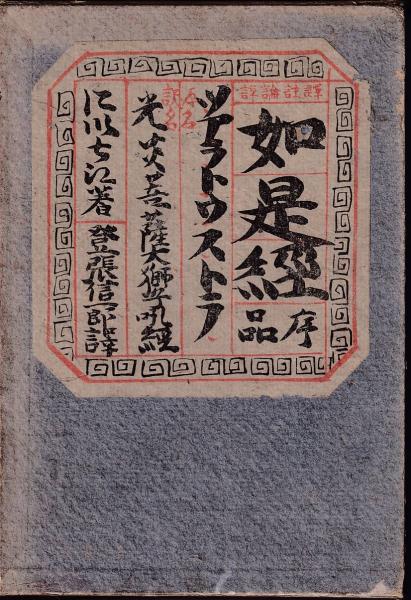 譯註論評
如是經
序品
本名
ツアラトウストラ
譯名
光炎菩薩大獅子吼經
登張信一郎譯